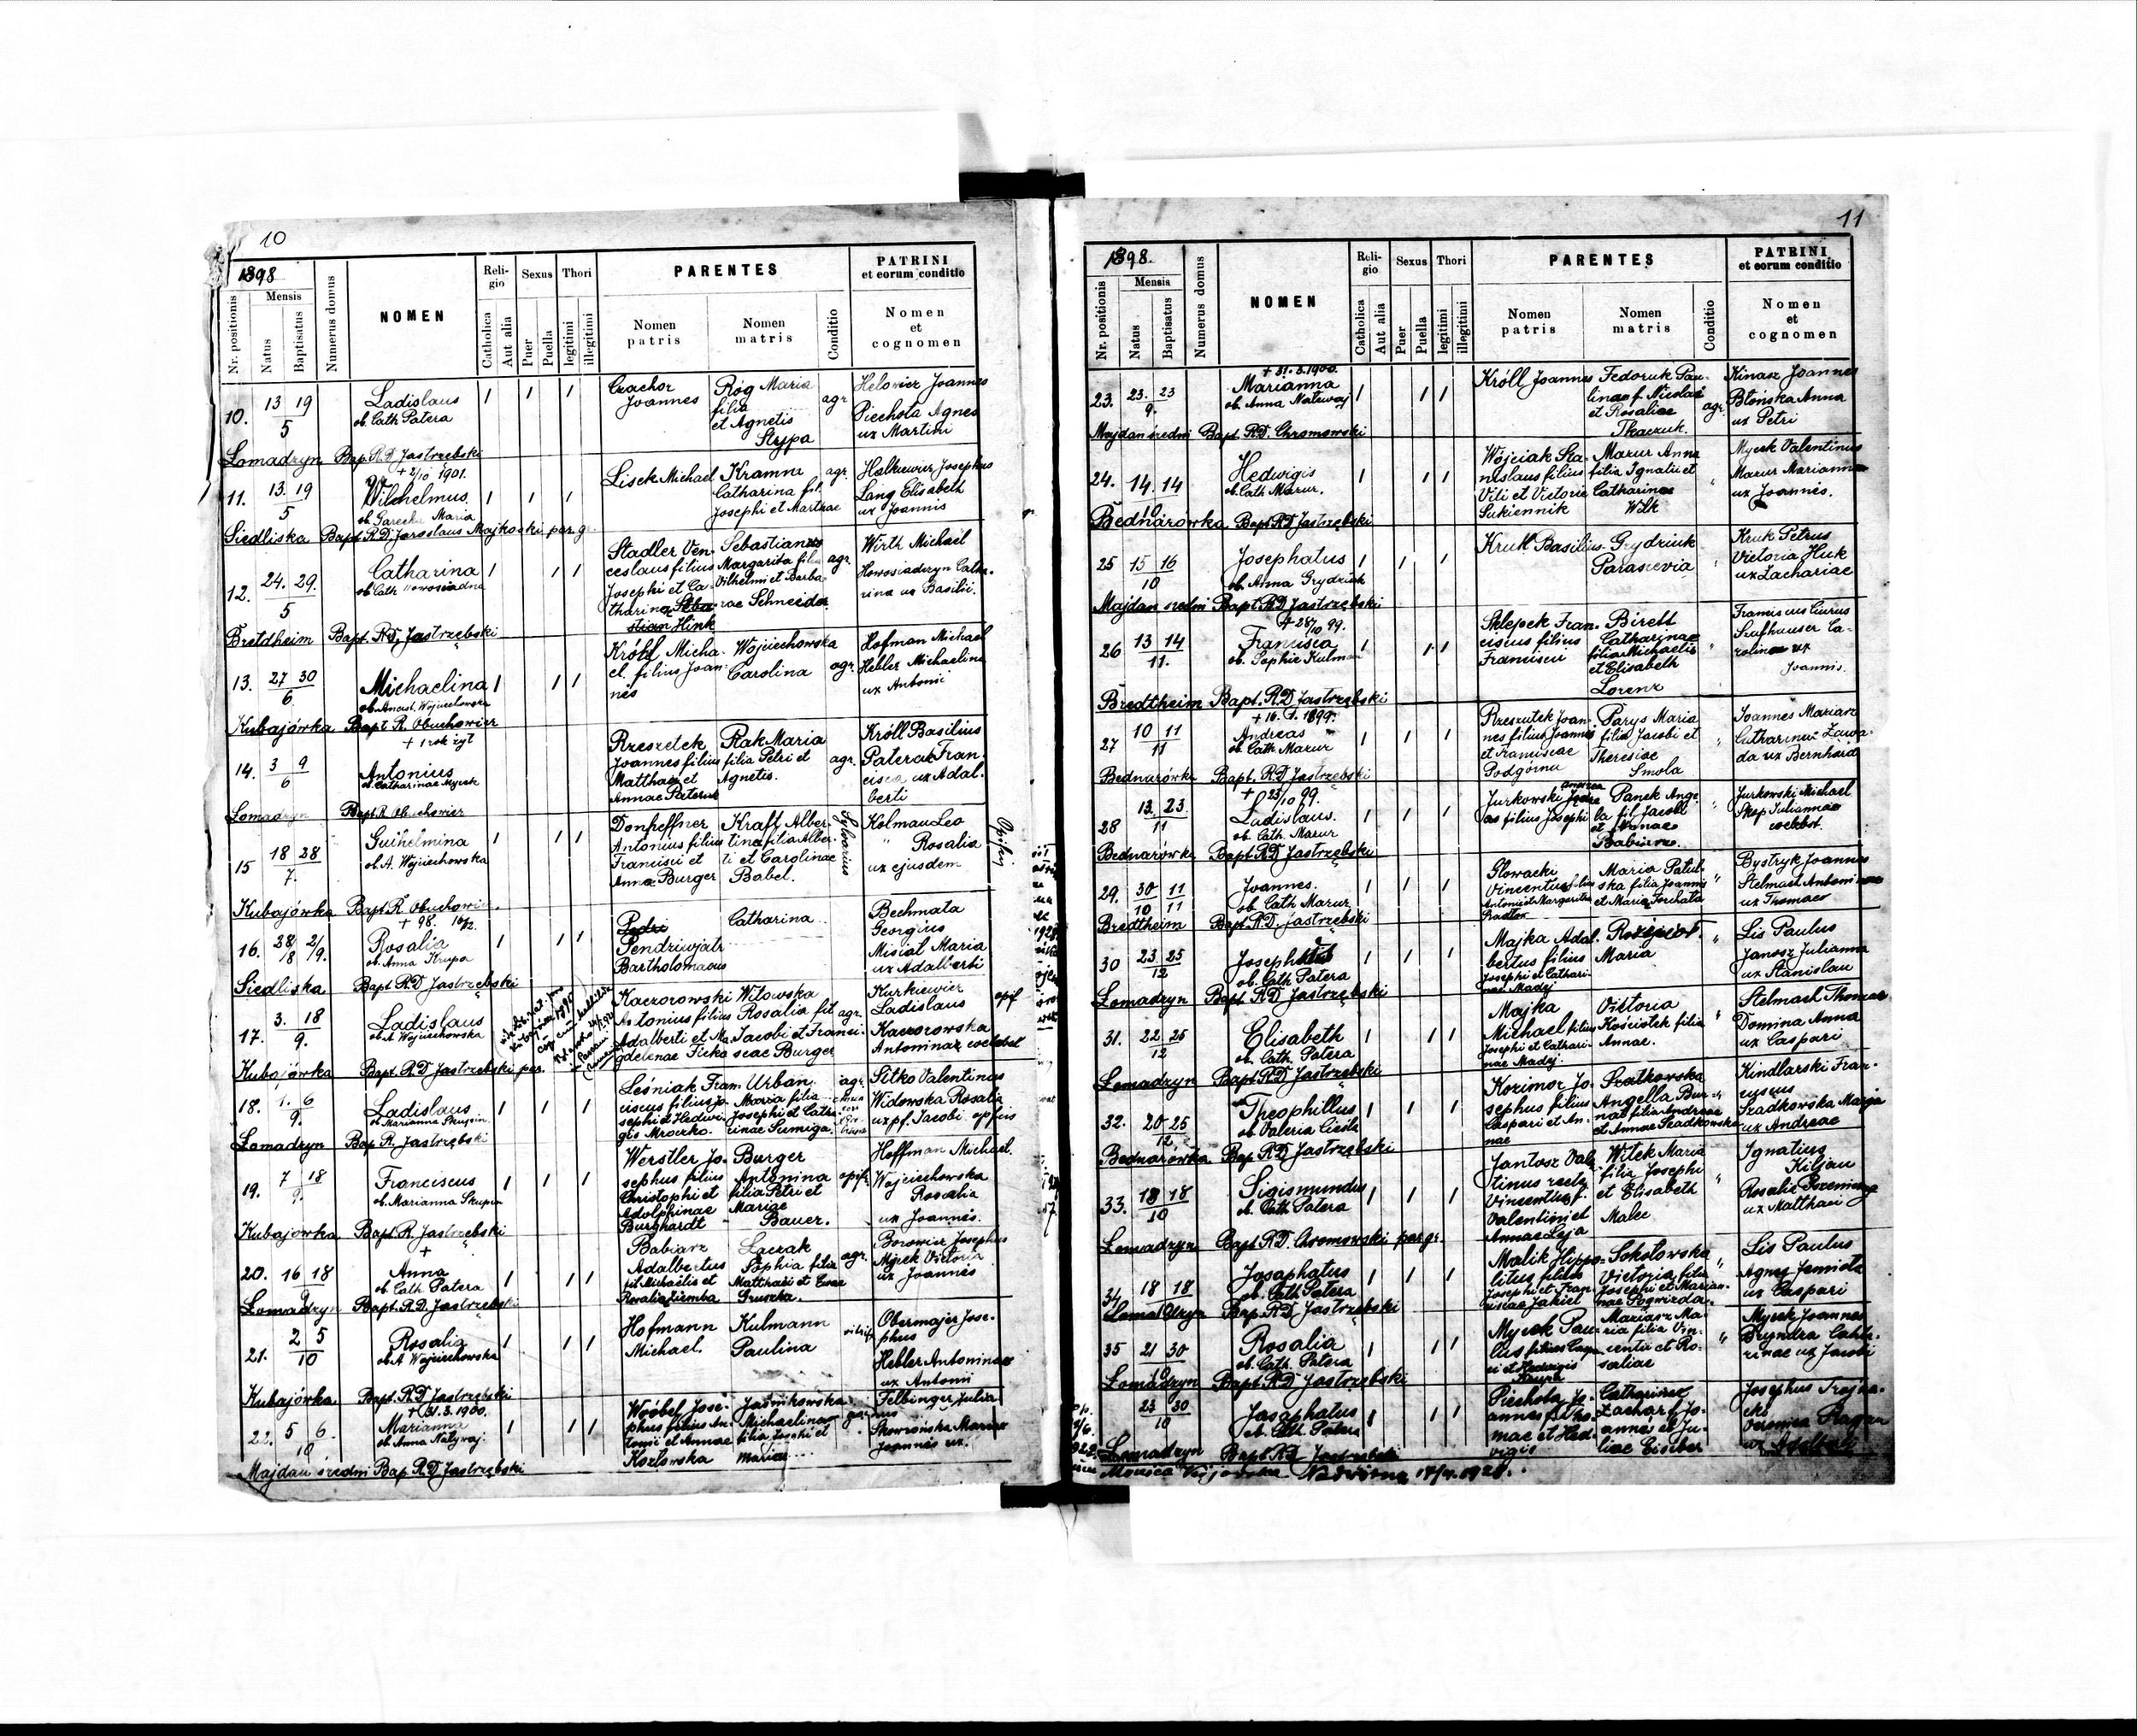 10
1898
Nr. positionis
Mensis
Natus
Baptisatus
Numerus domus
NOMEN
Reli-
gio
Catholica
Aut alia
Sexus
Puer
Puella
Thori
legitimi
illegitimi
PARENTES
Nomen
patris
Nomen
matris
Conditio
PATRINI
et eorum conditio
Nomen
et
cognomen
10. 13 19
5
Ladislaus
ob. Cath Patera
Joannes
Rog Maria
filia
et Agnetis
Stypa
agr
Helowicz Joannes
Piechota Agnes
ux Martini
Lomadzyn Bap. R.D. Jastrzebski
11. 13. 19
5
+ 2/10 1901.
Wilhelmus
Maria
Lisek Michael
Kramm
Catharina fil.
Josephi et Marthae
agr.
Halkiewicz Josephus
Lang Elisabeth
ux Joannis
Siedliska Bapt R.D. Jaroslaus Majkoski par. g.
12. 24. 29.
5
Catharina
ob Cath
Stadler Ven-
ceslaus filius
Josephi et Ca-
tharina
Hink
Margarita filia
Vilhelmi et Barba-
rae Schneider
agr.
Wirth Michael
rina ux Basilii.
Bretdheim Bapt. R.D. Jastrzębski
13. 27 30
6
Michaelina
ob. Anast. Wojciechowska
Micha-
el. filius Joan-
nes
Wojciechowska
Carolina
agr.
Hofman Michael
Hebler Michaelina
ux Antonii
Kubajówka Bapt R. Obuchowicz
14. 3 9
6
+ 1 rok żył
Antonius
ob. Catharinae Mycek
Rzeszetek
Joannes filius
Matthaei et
Annae Paterak
Ptak Maria
filia Petri et
Agnetis.
agr.
Króll Basilius
Paterak Fran-
cisca, ux Adal-
berti
Lomadzyn Bapt R. Obuchowicz
15 18 28
7.
Guihelmina
ob. A. Wojciechowska
Donheffner
Antonius filius
Francisci et
Anna Burger
Kraft Alber-
tina filia Alber-
ti et Carolinae
Babel.
Kolman Leo
" Rosalia
ux ejusdem
Opifex
Kubajówka Bapt R Obuchowi
16. 28/8 2/9.
+ 98. 10/12.
Rosalia
ob. Anna Krupa
Pendziwjatr
Bartholomaeus
Catharina
Bechmata
Georgius
Misiat Maria
ux Adalberti
Siedliska Bapt R.D Jastrzębski
17. 3. 18
9.
Ladislaus
ob. A Wojciechowska
Kaczorowski
Antonius filius
Adalberti et Ma-
gdelenae Ficka
Witowska
Rosalia fil
Jacobi et Franci-
scae Burger
agr.
Kurkiewicz
Ladislaus
opif
Kaczorowska
Antoninae coelebs
Kubajówka Bapt. R.D Jastrzębski par.
18. 1. 6
9.
Ladislaus
ob. Marianna
Leśniak Fran-
ciscus filius Jo-
sephi et Hedwi-
gis Mroczko.
Urban
Maria filia
Josephi et Catha-
rinae Sumiga.
agr.
Sitko Valentinus
Widowska Rosalia
ux pf. Jacobi opficis
Lomadzyn Bap R. Jastrzębski
19. 7 18
9.
Franciscus
ob. Marianna Skupin
Werstler Jo-
sephus filius
Christophi et
Adolphinae
Burghardt
Burger
Antonina
filia Petri et
Mariae
Bauer.
opif.
Hoffman Michael.
Wojciechowska
Rosalia
ux Joannes.
Kubajówka Bapt. R. Jastrzębski
20. 16 18
9
+
Anna
ob. Cath Patera
Babiarz
Adalbertus
fil Michaelis et
Rosalia Ziemba
Łaczak
Sophia filia
Matthaei et Evae
Gruszka.
agr.
Borowicz Josephus
Mycek Victoria
ux Joannes
Lomadzyn Bapt. R.D. Jastrzębski
21. 2 5
10
Rosalia
ob. A Wojciechowska
Hofmann
Michael.
Kulmann
Paulina
Obermajer Jose-
phus
Hebler Antoninae
ux Antoni
Kubajówka Bapt. R.D. Jastrzębski
22. 5 6.
10
+ 31.3.1900.
Marianna
ob. Anna Natywaj
Wróbel Jose-
phus filius An-
tonii et Annae
Kozlowska
Jasnikowska
Michaelina
filia Josephi et
Mariae
Felbinger Julia-
nus
Skowrońska Mariae
Joannes ux.
Majdan średni Bap. R.D Jastrzębski
11
1898.
Nr. positionis
Mensis
Natus
Baptisatus
Numerus domus
NOMEN
Reli-
gio
Catholica
Aut alia
Sexus
Puer
Puella
Thori
legitimi
illegitimi
PARENTES
Nomen
patris
Nomen
matris
Conditio
PATRINI
et eorum conditio
Nomen
et
cognomen
23. 23. 23
9.
+ 31.3.1900.
Marianna
ob. Anna Natewaj
Króll Joannes
Fedoruk Pau-
linae f. Nicolai
et Rosaliae
Tkaczuk.
agr.
Kinasz Joannes
Błońska Anna
ux Petri
Majdan średni Bapt. R.D. Chromowski
24. 14. 14
10
Hedwigis
ob. Cath Mazur.
Wójciak Sta-
nislaus filius
Viti et Victorie
Sukiennik
Mazur Anna
filia Ignatii et
Catharinae
Wilk
"
Mycek Valentinus
Mazur Marianna
ux Joannes.
Bednarówka Bapt. R.D Jastrzębski
25 15 16
10
Josephatus
ob. Anna Grydziuk
Kruk Basilius
Grydziuk
Parascevia
"
Kruk Petrus
Victoria Huk
ux Zachariae
Majdan średni Bapt. R.D Jastrzębski
26 13 14
11.
+ 28/10 99.
Francisca
ob. Sophie Kulman
Sklepek Fran-
ciscus filius
Francisci
Birett
Catharinae
filia Michaelis
et Elisabeth
Lorenz
"
Szafhauser Ca-
rolinae ux
Joannis.
Bredtheim Bapt. R.D Jastrzębski
27 10 11
11
Andreas
ob. Cath Mazur
Rzeszutek Joan-
nes filius Joannes
et Franciscae
Podgórna
Parys Maria
filia Jacobi et
Theresiae
Smola
"
Joannes Mariasz
Catharinae Zawa-
da ux Bernhard
Bednarówka Bapt. R.D Jastrzębski
28 13. 23.
11
+ 23/10 99.
Ladislaus.
ob. Cath. Mazur
Jurkowski
as filius Josephi
Panek Ange-
la fil Jacobi
et Annae
Babiarz.
"
Jurkowski Michael
Skop Juliannae
coelebst.
Bednarówka Bapt. R.D Jastrzębski
29. 30 11
10 11
Joannes.
ob. Cath Mazur
Glowacki
Vincentius filius
Antoni et Margaritae
Maria Patul-
ska filia Joannis
et Maria Forchata
"
Bystryk Joannes
Stelmach Antoninae
ux Thomae
Bredtheim Bapt. R.D. Jastrzębski
30 23 25
12
ob. Cath. Patera
Majka Adal-
bertus filius
Josephi et Cathari-
nae Madej
Maria
"
Lis Paulus
Janosz Julianna
ux Stanislau
Lomadzyn Bapt. R.D Jastrzębski
31. 22 25
12
Elisabeth
ob. Cath. Patera
Majka
Michael filius
Josephi et Cathari-
nae Madej.
Victoria
Kościołek filia
Annae.
"
Stelmach Thomas
Domina Anna
ux Caspari
Lomadzyn Bapt R.D Jastrzębski
32. 20 25
12
Theophillus
ob. Valeria Ciesla
Kozimor Jo-
sephus filius
Caspari et An-
nae
Szatkowska
Angella Bur-
nat filia Andreae
et Annae Szadkowska
"
Kindlarski Fran-
ciscus
Szadkowska Marja
ux Andreae
Bednarówka Bap. R.D Jastrzębski
33. 18 18
10
Sigismundus
ob. Cath Patera
Jantosz Valen-
tinus recte
Vincentius f.
Valentini et
Annae Leja
Witek Maria
filia Josephi
et Elisabeth
Malec
"
Ignatius
Kiljan
Rosalia
ux Matthaei
Lomadzyn Bapt R.D. Chromowski par. gr.
34 18 18
Josaphatus
ob. Cath Patera
Malik Hippo-
litus filius
Josephi et Fran-
ciscae Jakiel
Sokołowska
Victoria filia
Josephi et Marian-
nae Pogwizda.
"
Lis Paulus
Agnes
ux Caspari
Lomadzyn Bap. R.D Jastrzębski
35 21 30
10
Rosalia
ob. Cath. Patera
Mycek Pau-
lus filius
et Hedwigis
Mariasz Ma-
ria filia Vin-
centii et Ro-
saliae
"
Mycek Joannes
Bryndza Catha-
rinae ux Jacobi
Lomadzyn Bapt. R.D Jastrzębski
23 30
10
Josaphatus
ob. Cath Patera
Piechota Jo-
annes fil Tho-
mae et Hed-
vigis
Catharinae
Zachar f. Jo-
annes et Ju-
liae Eischer
Veronica
ux
Lomadzyn Bapt R.D Jastrzębski
1928.